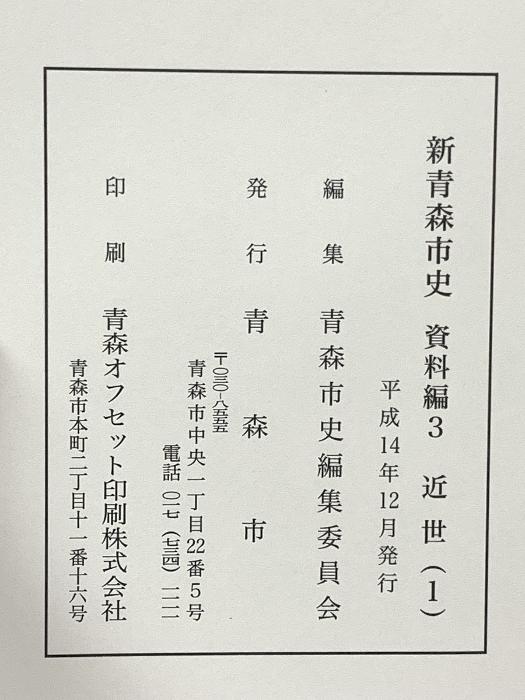 新青森市史 資料編3 近世(1)
平成14年12月発行
編集 青森市史編集委員会
発行 青森市
〒〇三〇-八五五五
青森市中央一丁目22番5号
電話 〇一七(七三四)一一一一
印刷 青森オフセット印刷株式会社
青森市本町二丁目十一番十六号